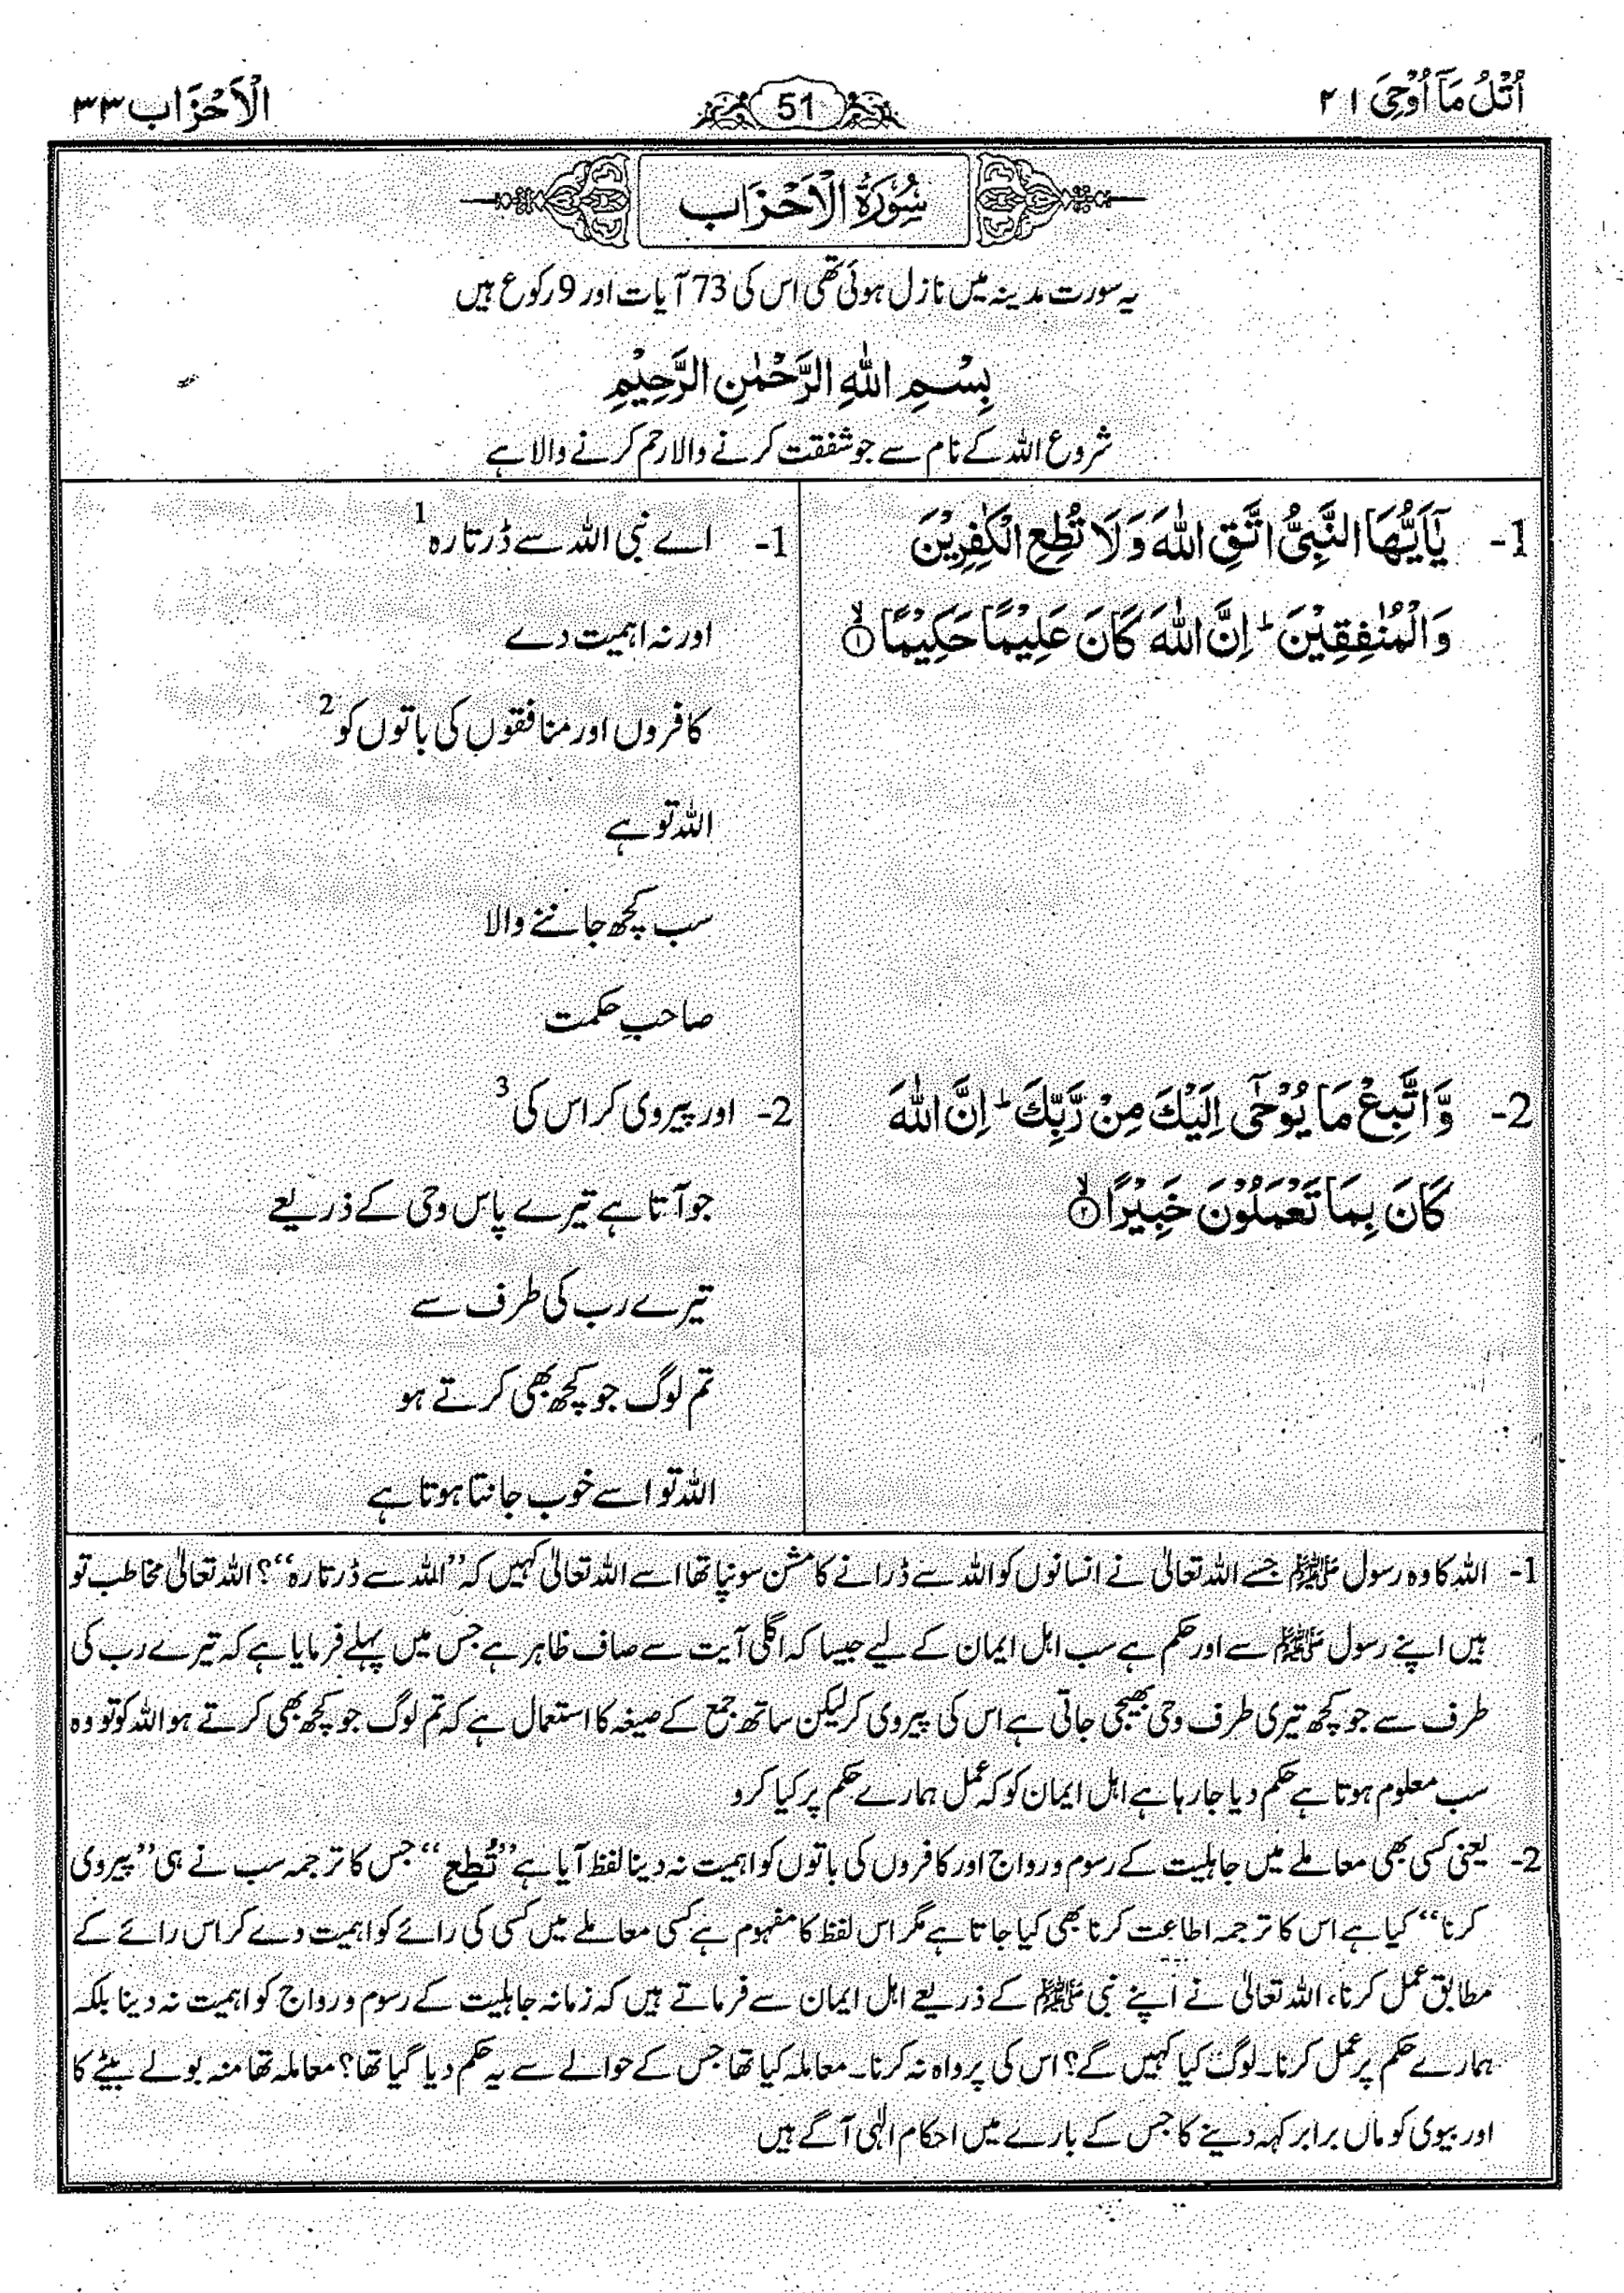 اُتْلُ مَآ اُوْحِیَ ۲۱
51
الْاَحْزَاب ۳۳
سُوْرَةُ الْاَحْزَاب
یہ سورت مدینہ میں نازل ہوئی تھی اس کی 73 آیات اور 9 رکوع ہیں
بِسْمِ اللّٰهِ الرَّحْمٰنِ الرَّحِیْمِ
شروع اللہ کے نام سے جو شفقت کرنے والا رحم کرنے والا ہے
1- یٰۤاَیُّهَا النَّبِیُّ اتَّقِ اللّٰهَ وَ لَا تُطِعِ الْكٰفِرِیْنَ
وَ الْمُنٰفِقِیْنَ ؕ اِنَّ اللّٰهَ كَانَ عَلِیْمًا حَكِیْمًا ۙ﴿۱﴾
2- وَّ اتَّبِعْ مَا یُوْحٰۤی اِلَیْكَ مِنْ رَّبِّكَ ؕ اِنَّ اللّٰهَ
كَانَ بِمَا تَعْمَلُوْنَ خَبِیْرًا ۙ﴿۲﴾
1- اے نبی اللہ سے ڈرتا رہ 1
اور نہ اہمیت دے
کافروں اور منافقوں کی باتوں کو 2
اللہ تو ہے
سب کچھ جاننے والا
صاحبِ حکمت
2- اور پیروی کر اس کی 3
جو آتا ہے تیرے پاس وحی کے ذریعے
تیرے رب کی طرف سے
تم لوگ جو کچھ بھی کرتے ہو
اللہ تو اسے خوب جانتا ہوتا ہے
1- اللہ کا وہ رسول ﷺ جسے اللہ تعالیٰ نے انسانوں کو اللہ سے ڈرانے کا مشن سونپا تھا اسے اللہ تعالیٰ کہیں کہ ’’اللہ سے ڈرتا رہ‘‘؟ اللہ تعالیٰ مخاطب تو
ہیں اپنے رسول ﷺ سے اور حکم ہے سب اہل ایمان کے لیے جیسا کہ اگلی آیت سے صاف ظاہر ہے جس میں پہلے فرمایا ہے کہ تیرے رب کی
طرف سے جو کچھ تیری طرف وحی بھیجی جاتی ہے اس کی پیروی کر لیکن ساتھ جمع کے صیغہ کا استعمال ہے کہ تم لوگ جو کچھ بھی کرتے ہو اللہ کو تو وہ
سب معلوم ہوتا ہے حکم دیا جا رہا ہے اہل ایمان کو کہ عمل ہمارے حکم پر کیا کرو
2- یعنی کسی بھی معاملے میں جاہلیت کے رسوم و رواج اور کافروں کی باتوں کو اہمیت نہ دینا لفظ آیا ہے ’’تُطِع‘‘ جس کا ترجمہ سب نے ہی ’’پیروی
کرنا‘‘ کیا ہے اس کا ترجمہ اطاعت کرنا بھی کیا جاتا ہے مگر اس لفظ کا مفہوم ہے کسی معاملے میں کسی کی رائے کو اہمیت دے کر اس رائے کے
مطابق عمل کرنا، اللہ تعالیٰ نے اپنے نبی ﷺ کے ذریعے اہل ایمان سے فرماتے ہیں کہ زمانہ جاہلیت کے رسوم و رواج کو اہمیت نہ دینا بلکہ
ہمارے حکم پر عمل کرنا۔ لوگ کیا کہیں گے؟ اس کی پرواہ نہ کرنا۔ معاملہ کیا تھا جس کے حوالے سے یہ حکم دیا گیا تھا؟ معاملہ تھا منہ بولے بیٹے کا
اور بیوی کو ماں برابر کہہ دینے کا جس کے بارے میں احکام الٰہی آگے ہیں